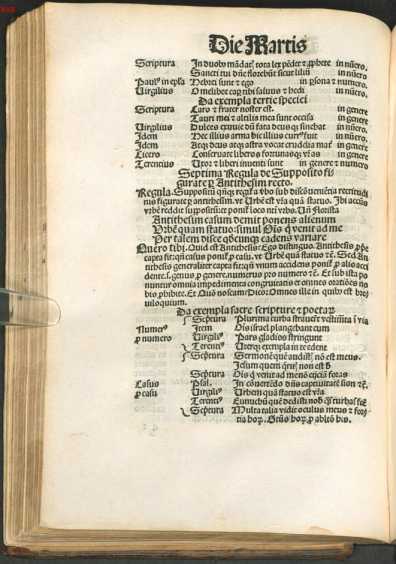 Die Martis
Scriptura In duobus mādat tota lex pēdet & pphete in nūero.
Sancti tui dñe florebūt sicut liliū in nūero
Paul⁹ in epla Debiti sunt & ego in psona & numero,
Virgilius O melibee cap tibi saluus & hedi in nūero.
Da exempla tertie speciei
Scriptura Caro & frater noster est. in genere
Tauri mei & altilia mea sunt occisa in genere
Virgilius Dulces exuuie dū fata deus q sinebat in genere
Idem Hec illius arma hic illius curr⁹ fuit in genere
Idem Atq deus atq astra vocat crudelia mat̄ in genere
Cicero Conseruate liberos fortunasq vr̄as in genere
Terentius Vtor & liberi inuenti sunt in genere & numero
Septima Regula de Supposito fi
gurate p Antithesim recto.
Regula. Suppositū
nis figurate p antithesim. vt Vrbē est vr̄a quā statuo. Ibi
vrbē reddit suppositū & ponit̄ loco nti vrbs. Vn̄
Antithesim casum demit ponens alienum
Vrbē quam statuo: simul Dn̄s q̄ venit ad me
Per talem disce cadens variare
Quero tibi. Quid est Antithesis: Ego distinguo. Antithesis p̄p̄e
capta fit: qn̄ casus ponit̄ p casu. vt Vrbē quā statuo &c̄. Sed An
tithesis generaliter capta fit: qn̄ vnum accidens ponit̄ p alio acci
dente. s. genus p genere. numerus pro numero &c̄. Et sub ista po
nuntur omnia impedimenta congruitatis et omnes orationes no
bis phibite. Et
uiloquium.
Da exempla sacre scripture & poetarū
Scptura Plurima turba
Numer⁹ Item Dis israel plangebant eum
p numero Virgili⁹ Pars gladios stringunt
Terenti⁹ Vterq exempla in te edent
Scptura Sermonē quē audistis nō est meus.
Iesum quem nō est
Scptura Dis q̄ venit ad me nō eijciā foras
Casus Psal. In cōuertēdo dn̄s captiuitatē sion &c̄.
p casu Virgili⁹ Vrbem quā statuo est vr̄a
Terenti⁹ Eunuchū quē dedisti nob
Scptura Multa talia vidit oculus meus &
tia horū.